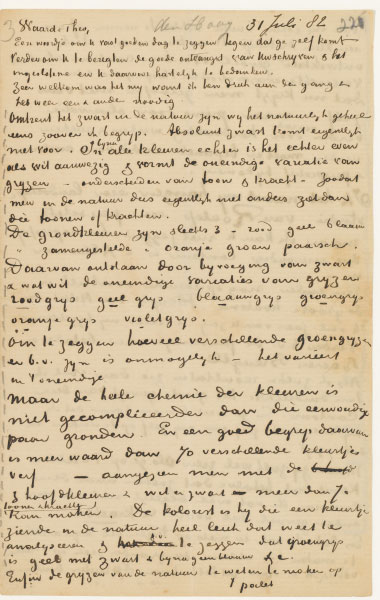 Waarde Theo, den Haag 31 Juli 82 226
Een woordje om U vast goeden dag te zeggen tegen dat ge zelf komt
Verder om U te berigten de goede ontvangst van Uw schrijven & het
ingeslotene en U daarvoor hartelijk te bedanken.
Zeer welkom was het mij want ik ben druk aan den gang en
heb weer een & ander noodig
Omtrent het zwart in de natuur zijn wij het natuurlijk geheel
eens zoover ik begrijp. Absoluut zwart komt eigentlijk
niet voor. In bijna alle kleuren echter is het echter even
als wit aanwezig & vormt de oneindige variatie van
gryzen – onderscheiden van toon & kracht – zoodat
men in de natuur dus eigentlijk niet anders ziet dan
die toonen of krachten.
De grondkleuren zijn slechts 3 – rood geel blaauw
" zamengestelde " oranje groen paarsch.
Daarvan ontstaan door bijvoeging van zwart
& wat wit de oneindige variaties van gryzen
roodgrijs geelgrijs – blaauwgrijs groengrijs
oranjegrijs violetgrijs.
Om te zeggen hoeveel verschillende groengryzen
er b.v. zijn is onmogelijk – het varieert
in 't oneindige
Maar de heele chemie der kleuren is
niet gecompliceerder dan die eenvoudige
paar gronden. En een goed begrip daarvan
is meer waard dan 70 verschillende kleurtjes
verf – aangezien men met de
3 hoofdkleuren & wit en zwart meer dan 70
toonen & krachten
kan maken. De kolorist is hij die een kleurtje
ziende in de natuur heel leuk dat weet te
analyseeren & bv. te zeggen dat groengrijs
is geel met zwart & bijna geen blauw &c.
Enfin de gryzen van de natuur te weten te maken op
't palet